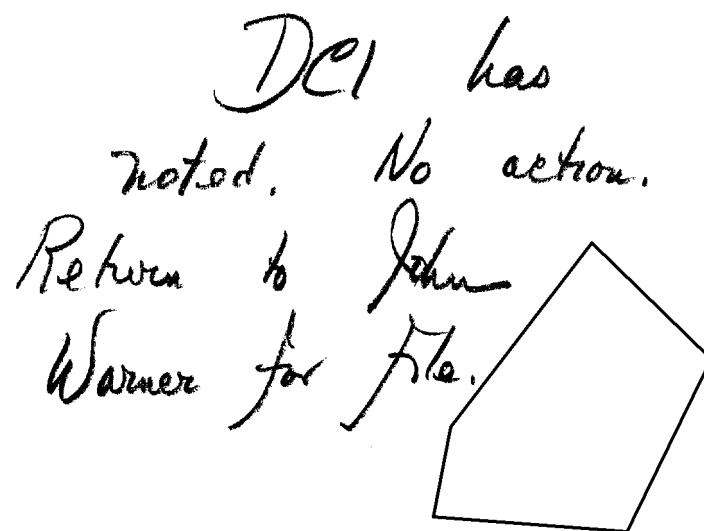 DCI has
noted. No action.
Return to John
Warner for File.